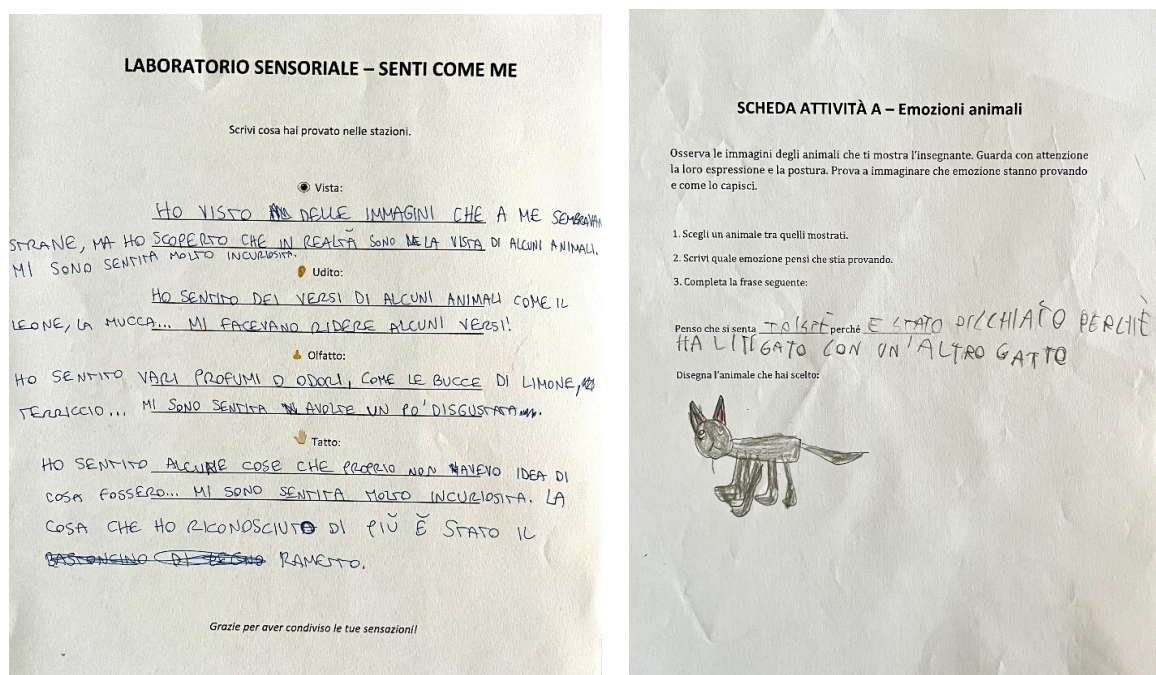 LABORATORIO SENSORIALE – SENTI COME ME
Scrivi cosa hai provato nelle stazioni.
Vista:
HO VISTO DELLE IMMAGINI CHE A ME SEMBRAVAN
STRANE, MA HO SCOPERTO CHE IN REALTĂ SONO LA VISTA DI ALCUNI ANIMALI.
MI SONO SENTITA MOLTO INCURIOSITA.
Udito:
HO SENTITO DEI VERSI DI ALCUNI ANIMALI COME IL
LEONE, LA MUCCA... MI FACEVANO RIDERE ALCUNI VERSI!
Olfatto:
HO SENTITO VARI PROFUMI O ODORI, COME LE BUCCE DI LIMONE,
TERRICCIO... MI SONO SENTITA AVOLTE UN PO' DISGUSTATA.
Tatto:
HO SENTITO ALCUNE COSE CHE PROPRIO NON AVEVO IDEA DI
COSA FOSSERO... MI SONO SENTITA MOLTO INCURIOSITA. LA
COSA CHE HO RICONOSCIUTO DI PIŬ Ĕ STATO IL
BASTONCINO DI LEGNO RAMETTO.
Grazie per aver condiviso le tue sensazioni!
SCHEDA ATTIVITÀ A – Emozioni animali
Osserva le immagini degli animali che ti mostra l'insegnante. Guarda con attenzione
la loro espressione e la postura. Prova a immaginare che emozione stanno provando
e come lo capisci.
1. Scegli un animale tra quelli mostrati.
2. Scrivi quale emozione pensi che stia provando.
3. Completa la frase seguente:
Penso che si senta perché E STATO PICCHIATO PERCHÈ
HA LITIGATO CON UN'ALTRO GATTO
Disegna l'animale che hai scelto: